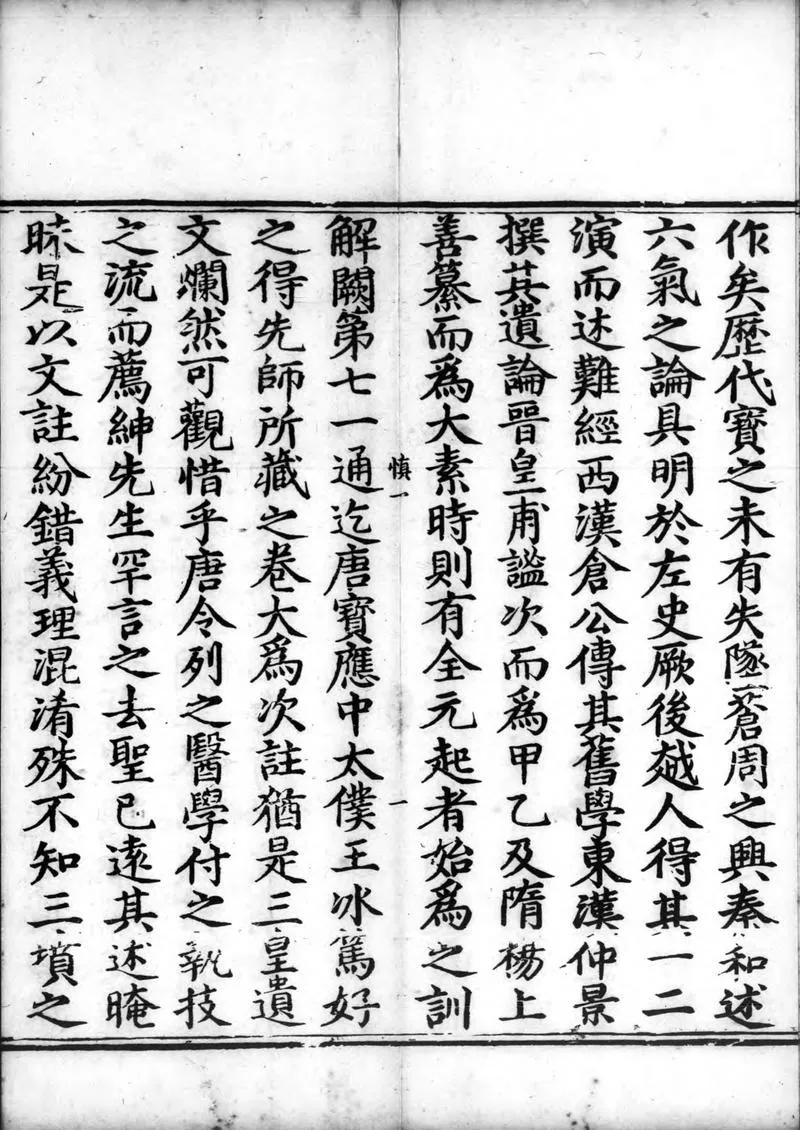 作矣歷代寶之未有失墜蒼周之興秦和述
六氣之論具明於左史厥後越人得其一二
演而述難經西漢倉公傳其舊學東漢仲景
撰其遺論晉皇甫謐次而為甲乙及隋楊上
善纂而為大素時則有全元起者始為之訓
慎一
一
解闕第七一通迄唐寶應中太僕王冰篤好
之得先師所藏之卷大為次註猶是三皇遺
文爛然可觀惜乎唐令列之醫學付之執技
之流而薦紳先生罕言之去聖已遠其述晻
昧是以文註紛錯義理混淆殊不知三墳之